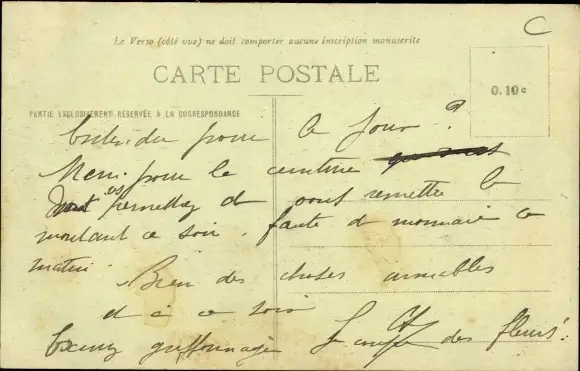 C
Le Verso (côté vue) ne doit comporter aucune inscription manuscrite
CARTE POSTALE
0.10c
PARTIE EXCLUSIVEMENT RÉSERVÉE A LA CORRESPONDANCE
pour le jour ?
Merci pour la ceinture
permettez de vous remettre le
montant ce soir, faute de monnaie ce
matin
Bien des choses aimables
et à ce soir
Excusez griffonnage des fleurs!